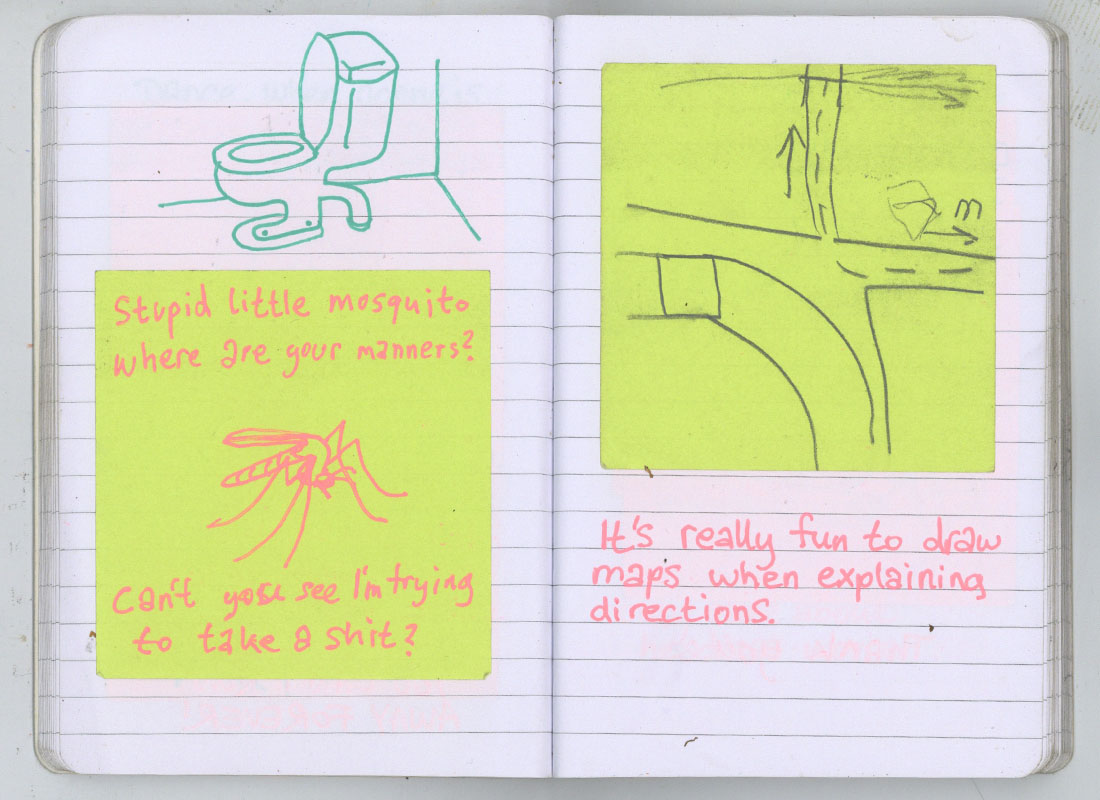 Stupid little mosquito
where are your manners?
Can't you see I'm trying
to take a shit?
m
It's really fun to draw
maps when explaining
directions.